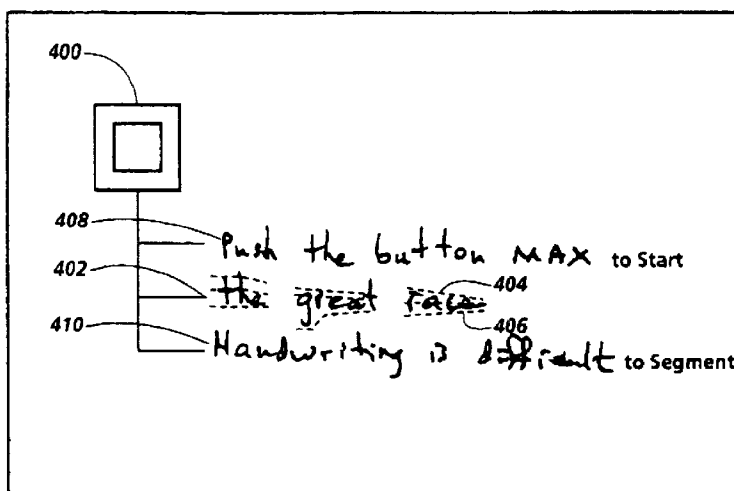 400
408 Push the button MAX to Start
402 the great race 404
406
410 Handwriting is difficult to Segment